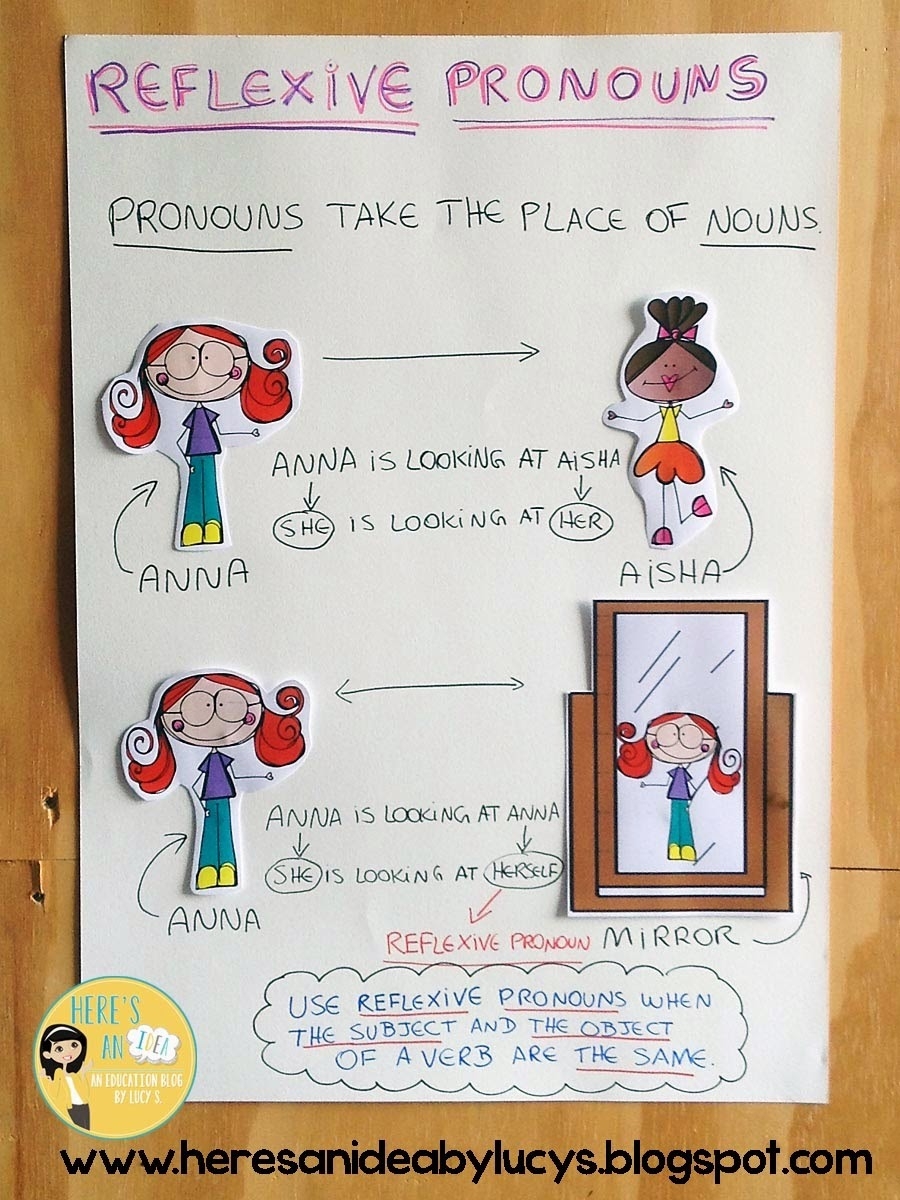 REFLEXIVE PRONOUNS
PRONOUNS TAKE THE PLACE OF NOUNS.
ANNA iS LOOKING AT AiSHA
SHE iS LOOKING AT HER
ANNA
AiSHA
ANNA iS LOOKING AT ANNA
SHE iS LOOKING AT HERSELF
ANNA
REFLEXIVE PRONOUN
MiRROR
USE REFLEXIVE PRONOUNS WHEN
THE SUBJECT AND THE OBJECT
OF A VERB ARE THE SAME.
HERE'S
AN IDEA
AN EDUCATION BLOG
BY LUCY S.
www.heresanideabylucys.blogspot.com